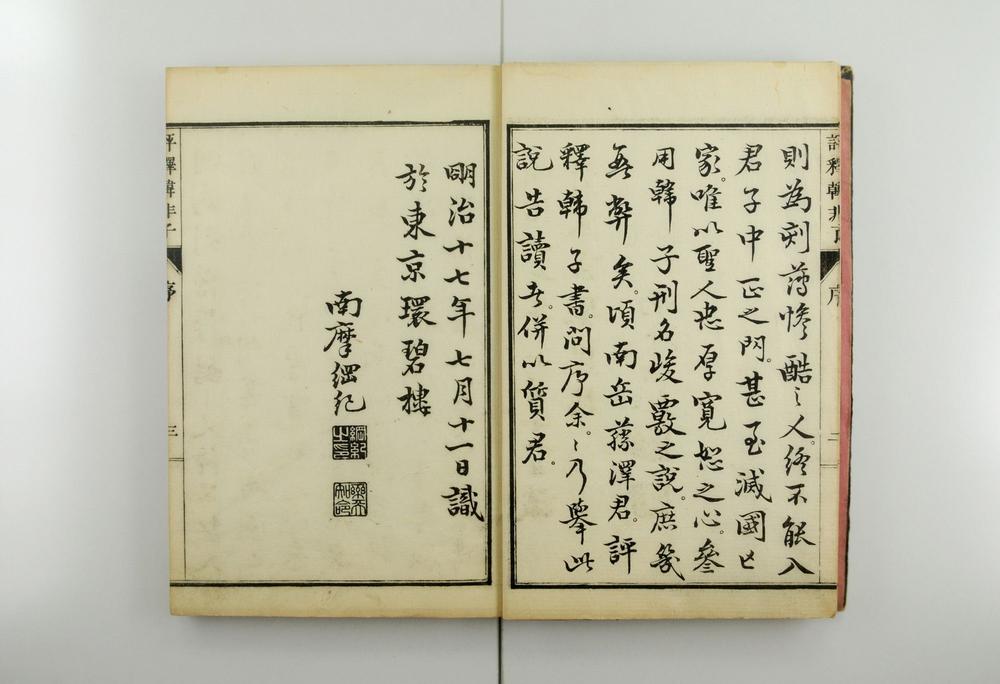 評釋韓非子
序
二
則為刻薄惨酷〻人終不能入
君子中正之門甚至滅國亡
家唯以聖人忠厚寛恕之心參
用韓子刑名峻覈之說庶幾
無弊矣頃南岳藤澤君評
釋韓子書問序余〻乃擧此
說告讀者併以質君
明治十七年七月十一日識
於東京環碧樓
南摩綱紀
綱紀之印
評釋韓非子
序
三